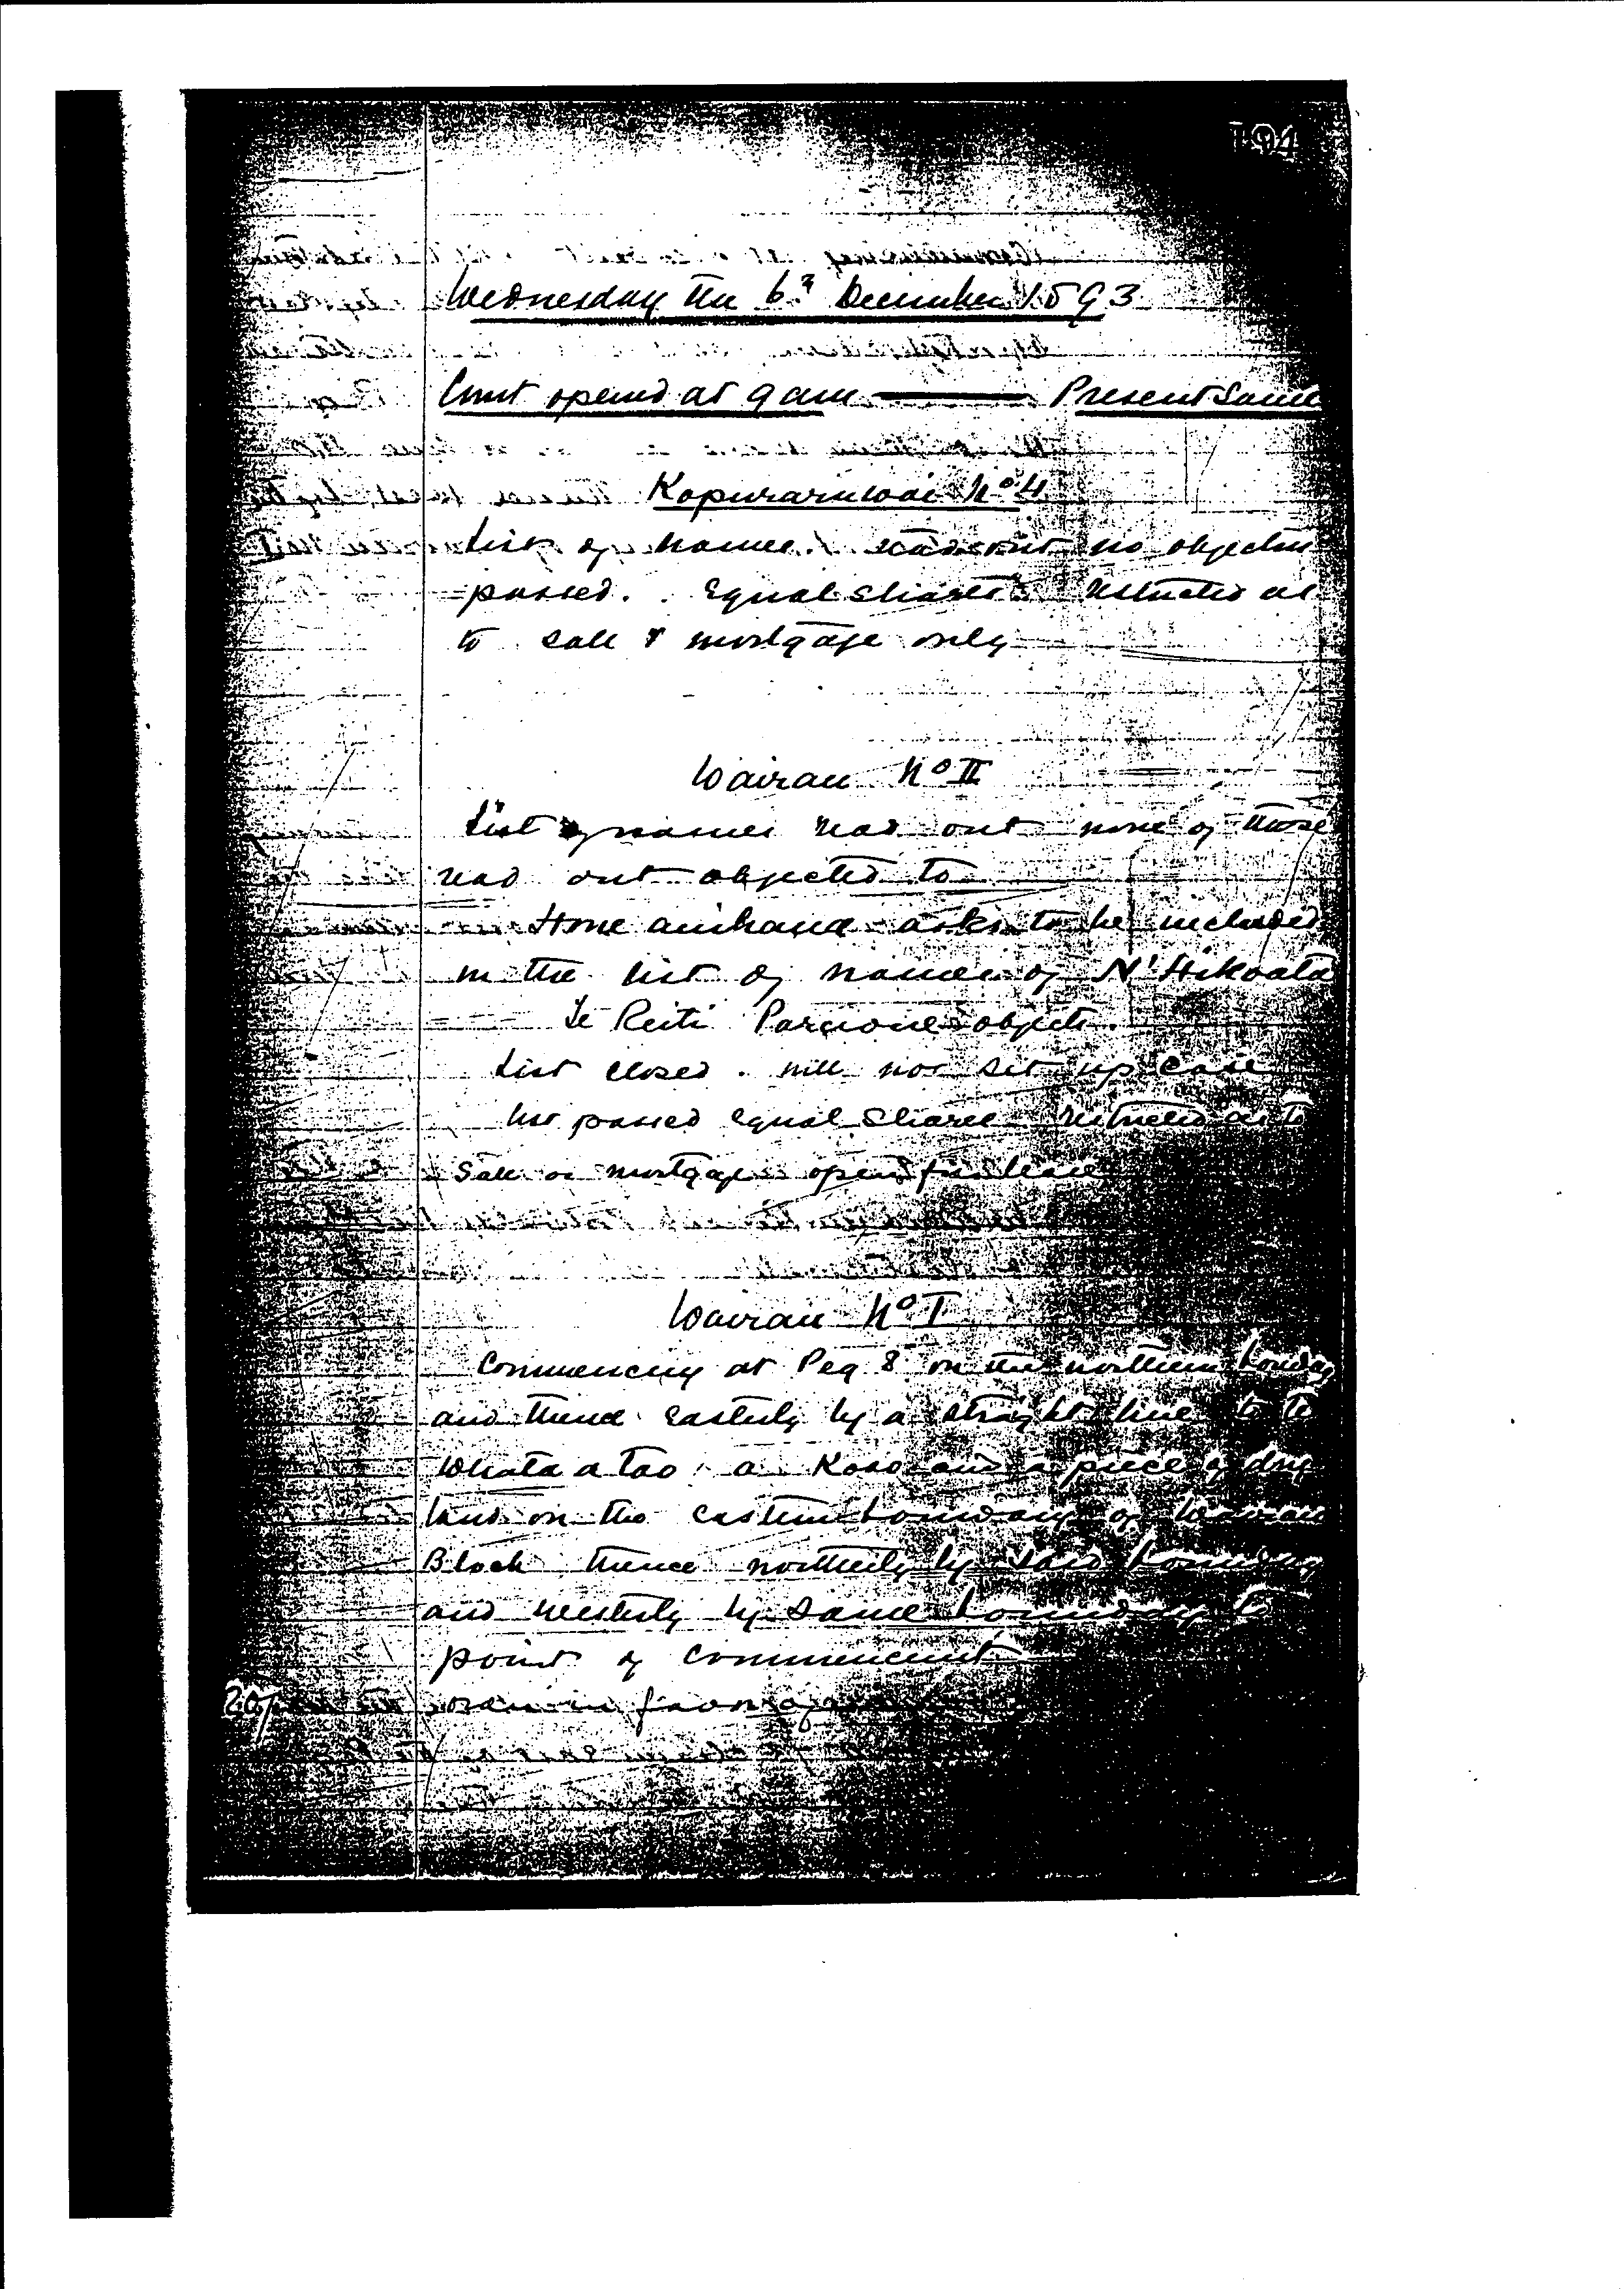 194
Wednesday the 6th December 1893
Court opened at 9 am Present Same
Kopuraruwai No 4
List of names read out no objection
passed. Equal shares restricted as
to sale & mortgage only
Wairau No II
List of names read out none of those
read out objected to
Hone asks to be included
in the list of names of N' Hikoata
Te Reiti Paraone objects.
List closed. will not set up case
List passed equal shares restricted as to
sale or mortgage open for lease
Wairau No I
Commencing at Peg 8 on the northern boundary
and thence easterly by a straight line to Te
Whata a tao a and a piece of dry
land on the eastern boundary of Wairau
Block thence northerly by said boundary
and westerly by same boundary to
point of commencement
20/ order in favor of